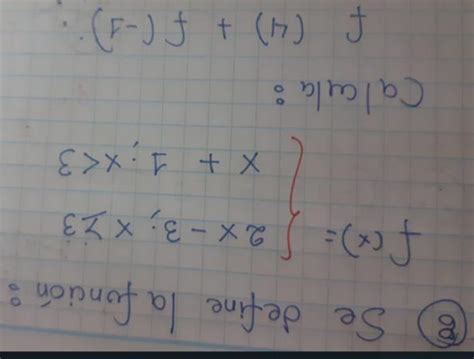 Se define la función:
f(x)= { 2x - 3; x ≥ 3
x + 1; x < 3
Calcula:
f(4) + f(-1).